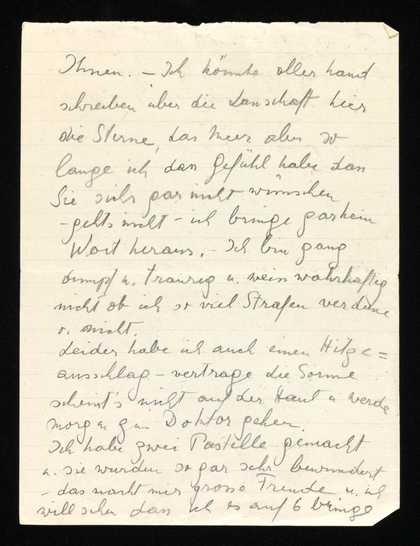 Ihnen. – Ich könnte aller hand
schreiben über die Lanschaft hier
die Sterne, das Meer aber so
lange ich das Gefühl habe dass
Sie sichs gar nicht wünschen
– gehts nicht – ich bringe gar kein
Wort heraus. – Ich bin ganz
dumpf u. traurig u. weiss wahrhaftig
nicht ob ich so viel Strafen verdiene
o. nicht.
Leider habe ich auch einen Hitze=
ausschlag – vertrage die Sonne
scheint's nicht auf der Haut u. werde
morgen z. Doktor gehen.
Ich habe zwei Pastelle gemacht
u. sie wurden so gar sehr bewundert
– das macht mir grosse Freude u. ich
will sehen dass ich es auf 6 bringe